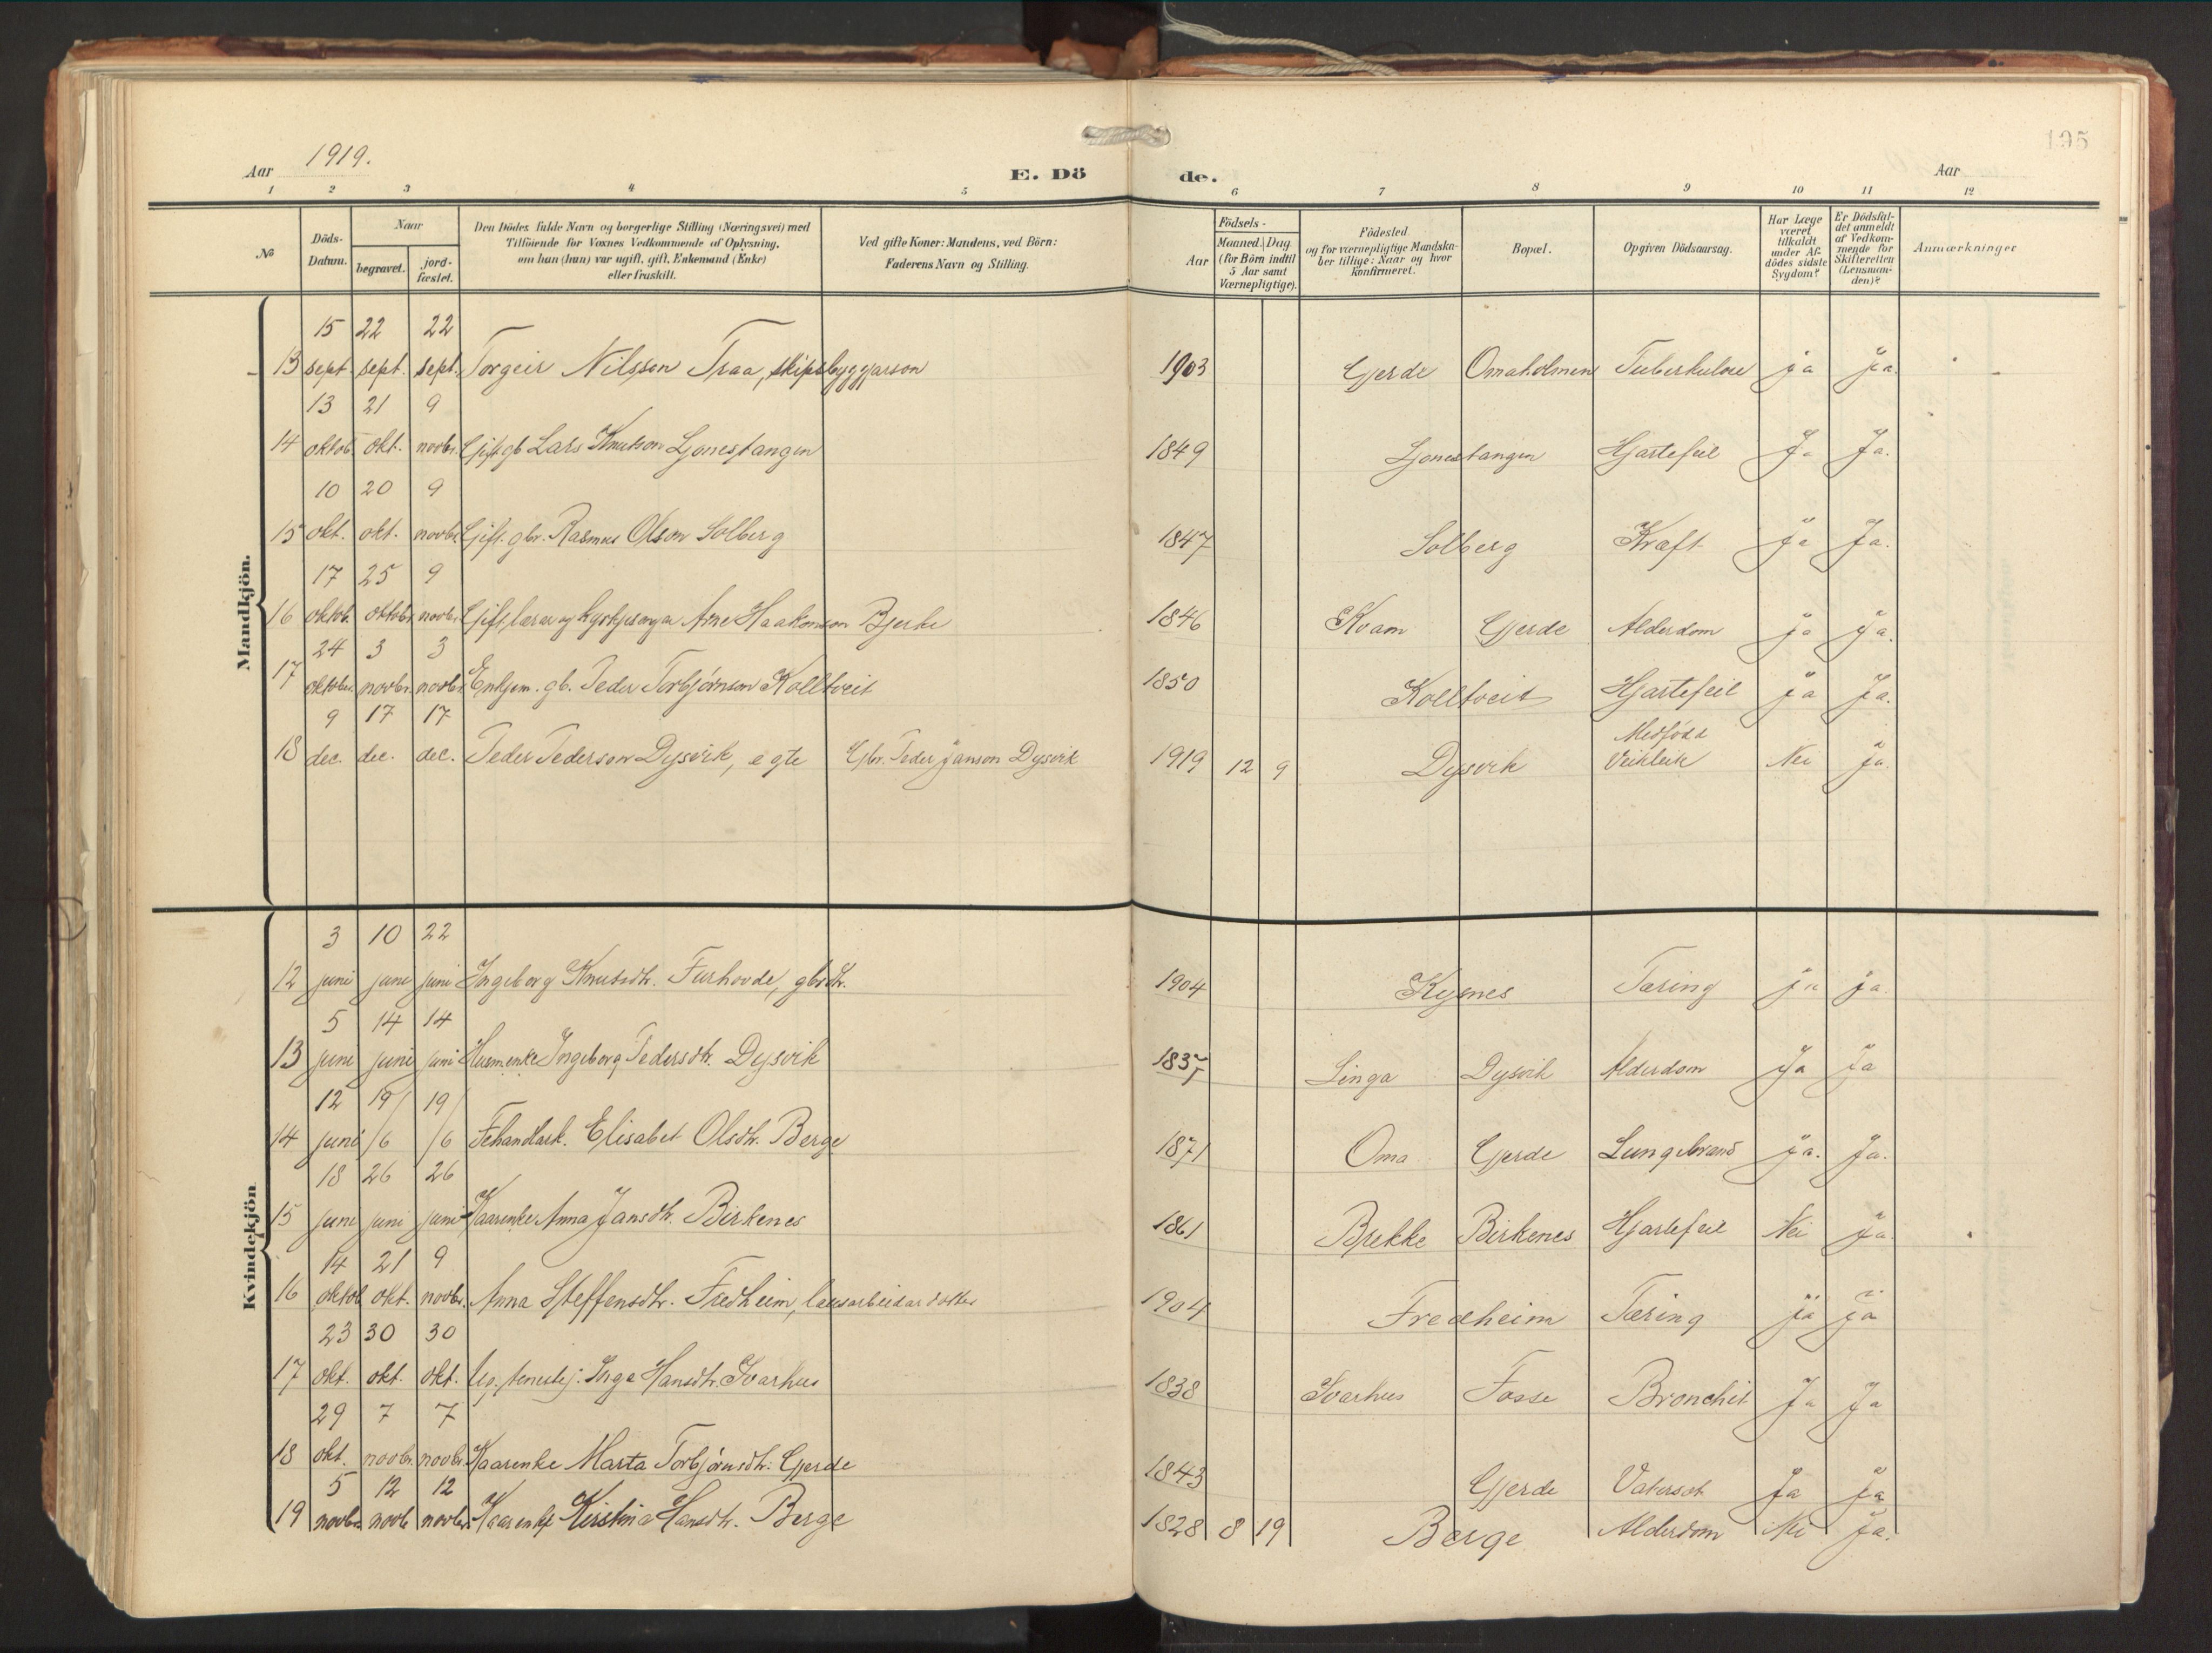 195
Aar 1919. E. Dö de. Aar
1 2 3 4 5 6 7 8 9 10 11 12
№
Döds-Datum.
Naar
begravet.
jord-fæstet.
Den Dödes fulde Navn og borgerlige Stilling (Næringsvei) med
Tilföiende for Voxnes Vedkommende af Oplysning,
om han (hun) var ugift, gift, Enkemand (Enke)
eller fraskilt.
Ved gifte Koner: Mandens, ved Börn:
Faderens Navn og Stilling.
Födsels-
Aar
Maaned. Dag.
(for Börn indtil
5 Aar samt
Værnepligtige).
Födested
og for værnepligtige Mandska-
ber tillige: Naar og hvor
Konfirmeret.
Bopæl.
Opgiven Dödsaarsag.
Har Læge
været
tilkaldt
under Af-
dödes sidste
Sygdom?
Er Dödsfal-
det anmeldt
af Vedkom-
mende for
Skifteretten
(Lensman-
den)?
Anmærkninger
Mandkjön.
15 22 22
13 sept. sept. sept. Torgeir Nilsson Traa, skipsbyggjarson 1903 Gjerde Omaholmen Tuberkulose ja Ja.
13 21 9
14 oktob. okt. novbr. Gift gb Lars Knutson Ljonestangen 1849 Ljonestangen Hjartefeil Ja Ja.
10 20 9
15 okt. okt. novbr. Gift. gbr. Rasmus Olson Solberg 1847 Solberg Kræft Ja Ja.
17 25 9
16 oktob. oktobr. novbr. Gift, lærar og kyrkjesongar Arne Haakonson Bjerke 1846 Kvam Gjerde Alderdom ja Ja.
24 3 3
17 oktobr. novbr. novbr. Enkjem. gb. Peder Torbjørnson Kolltveit 1850 Kolltveit Hjartefeil Ja Ja.
9 17 17
18 dec. dec. dec. Peder Pederson Dysvik, egte Gbr. Peder Janson Dysvik 1919 12 9 Dysvik Medfödd Veikleik Nei Ja.
Kvindekjön
3 10 22
12 juni juni juni Ingeborg Knutsdtr. Furhovde, gbrdtr. 1904 Kysnes Tæring ja ja.
5 14 14
13 juni juni juni Husm.enke Ingeborg Pedersdtr. Dysvik 1837 Linga Dysvik Alderdom Ja Ja
12 19/ 19/
14 juni /6 /6 Fehandlark. Elisabet Olsdtr. Berge 1871 Oma Gjerde Lungebrand Ja. Ja.
18 26 26
15 juni juni juni Kaarenke Anna Jansdtr. Birkenes 1861 Brekke Birkenes Hjartefeil Nei Ja.
14 21 9
16 oktob okt. novbr. Anna Steffensdtr. Fredheim, lausarbeidardotter 1904 Fredheim Tæring Ja Ja
23 30 30
17 okt. okt. okt. Ug. tenestej. Inga Hansdtr. Svarhus 1838 Svarhus Fosse Bronchit Ja Ja
29 7 7
18 okt. novbr. novbr. Kaarenke Marta Torbjørnsdtr. Gjerde 1843 Gjerde Vatersot Ja Ja
5 12 12
19 novbr. novb novbr. Kaarenke Kirstina Hansdtr. Berge 1828 8 19 Berge Alderdom Nei Ja.